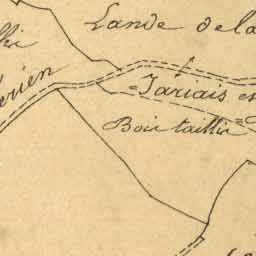 Lande de la
Jariais es
Bois taillis
érien